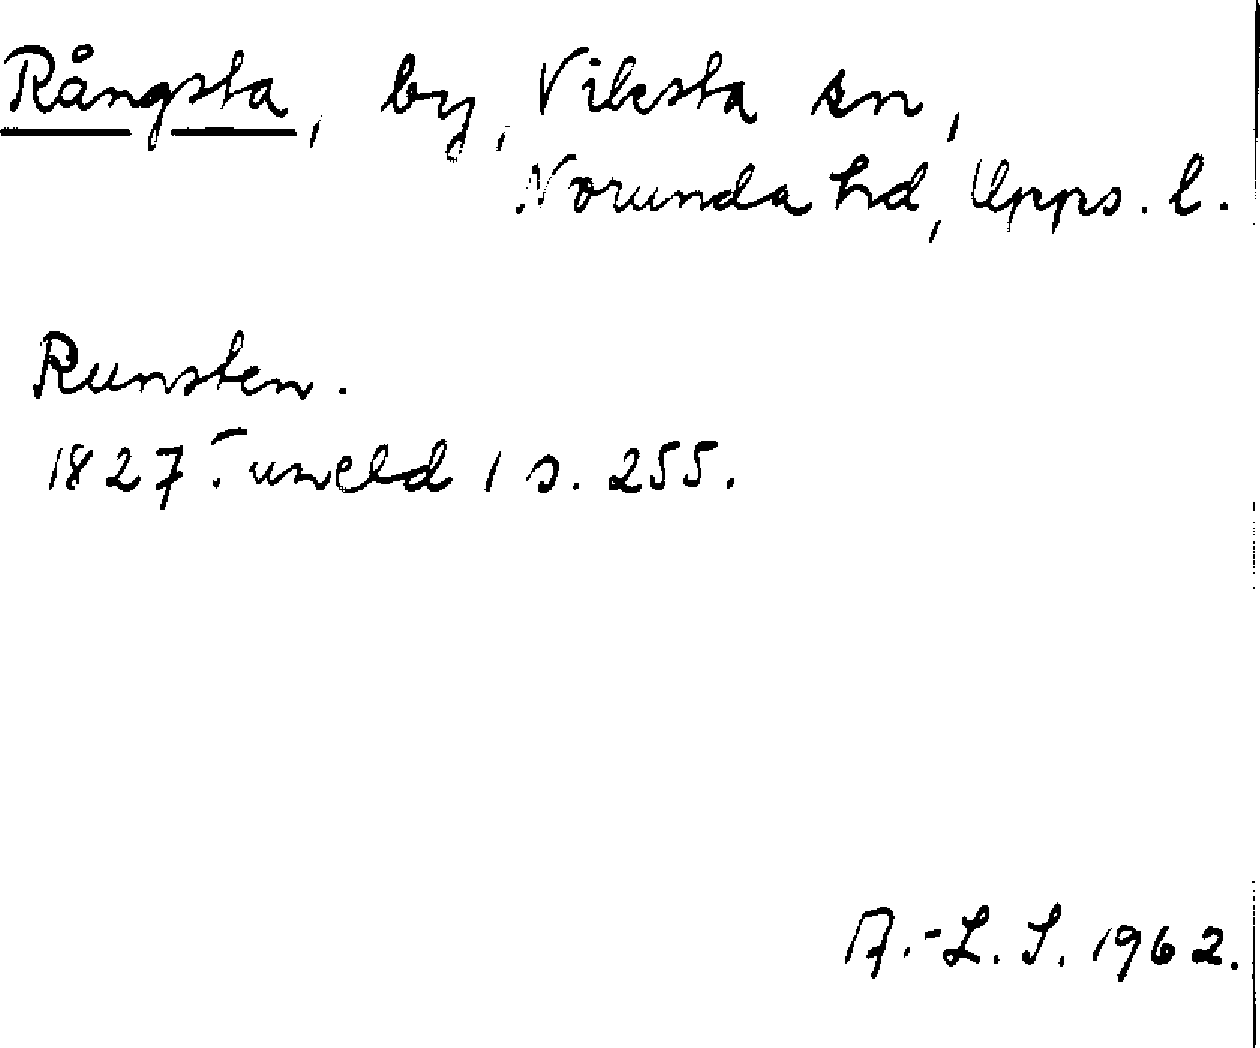 Rångsta, by, Viksta sn,
Norunda hd, Upps. l.
Runsten.
1827. Tuneld 1 s. 255.
A.-L. S. 1962.